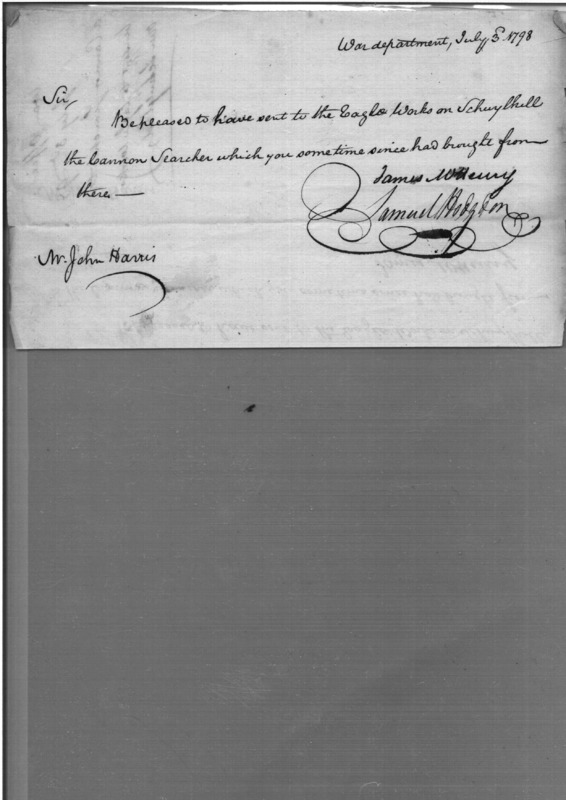 War department, July 3d 1798
Sir,
Be pleased to have sent to the Eagle Works on Schuylkill
the Cannon Searcher which you sometime since had brought from
there —
James McHenry
Samuel Hodgdon
Mr. John Harris